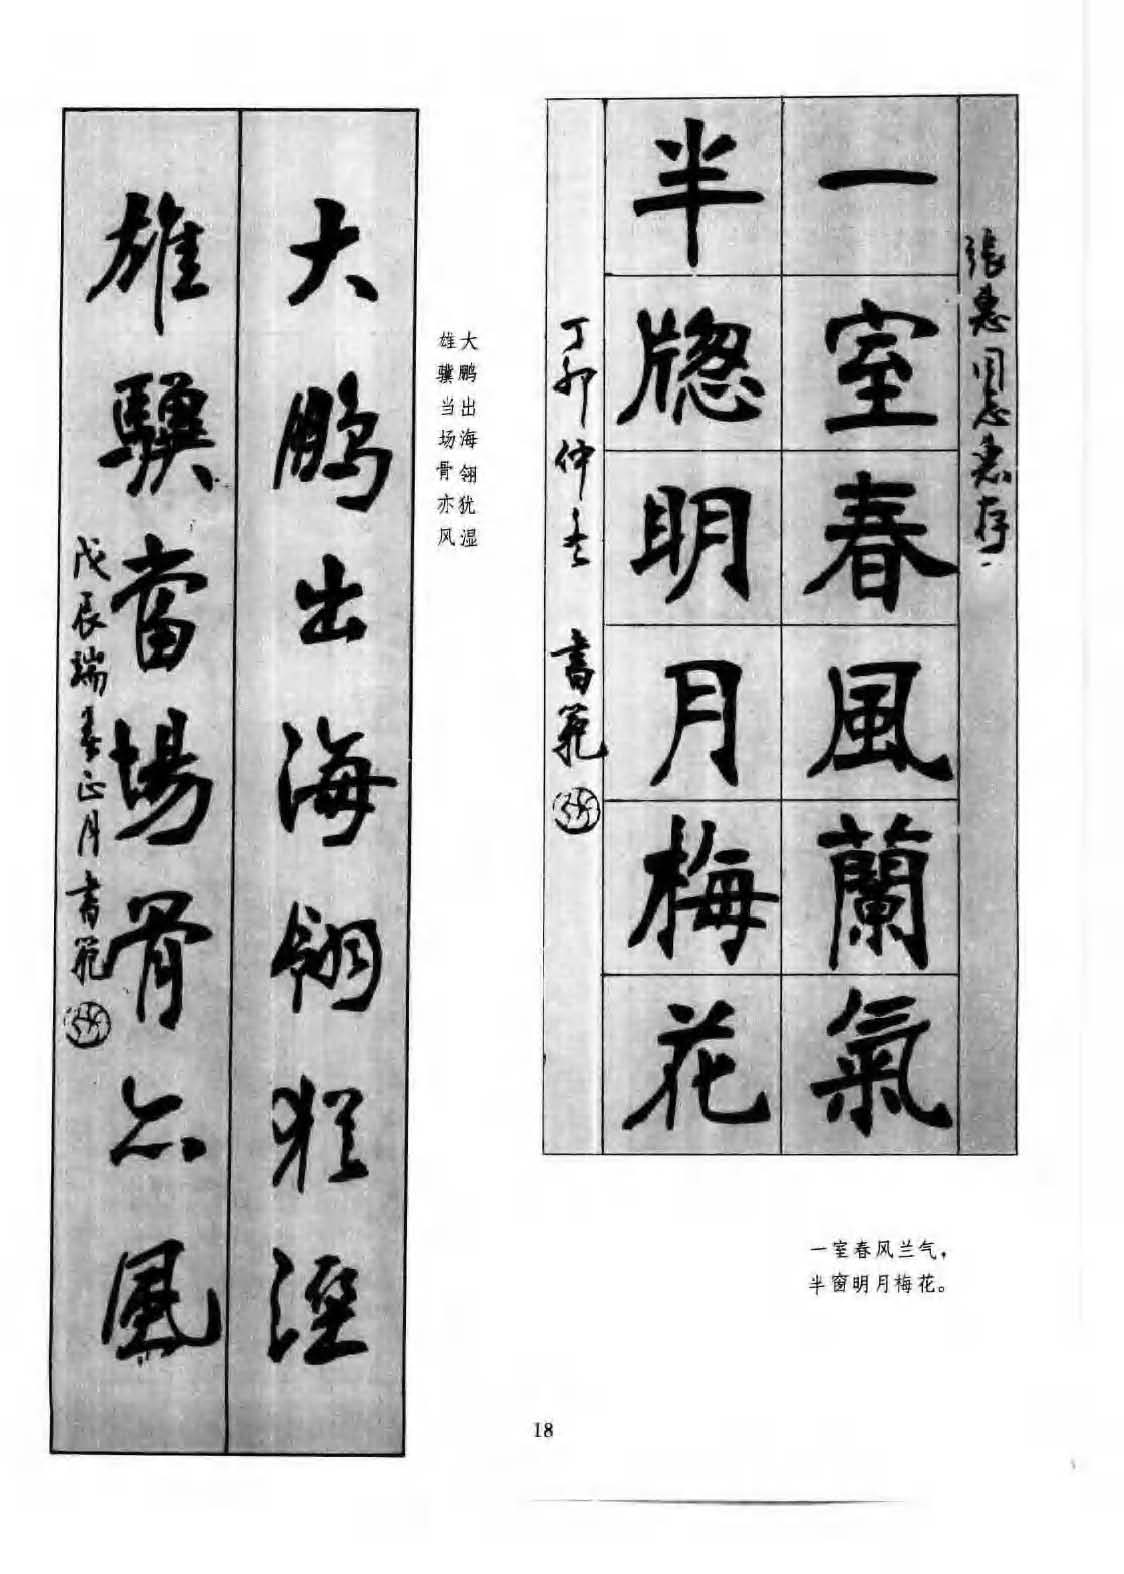 張惠同志惠存
一室春風蘭氣
半牕明月梅花
丁卯仲冬 書範
一室春风兰气，
半窗明月梅花。
大鹏出海翎犹湿
雄骥当场骨亦风
大鵬出海翎猶溼
雄驥當場骨亦風
戊辰瑞春正月書範
18